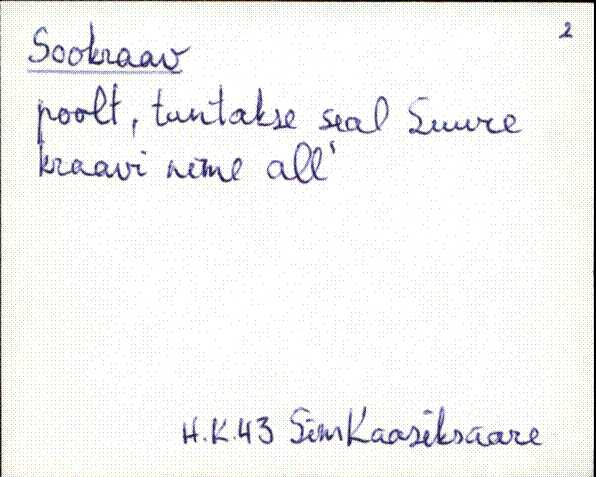 2
Sookraav
poolt, tuntakse seal Suure
kraavi nime all'
H.K.43 Sim Kaasiksaare